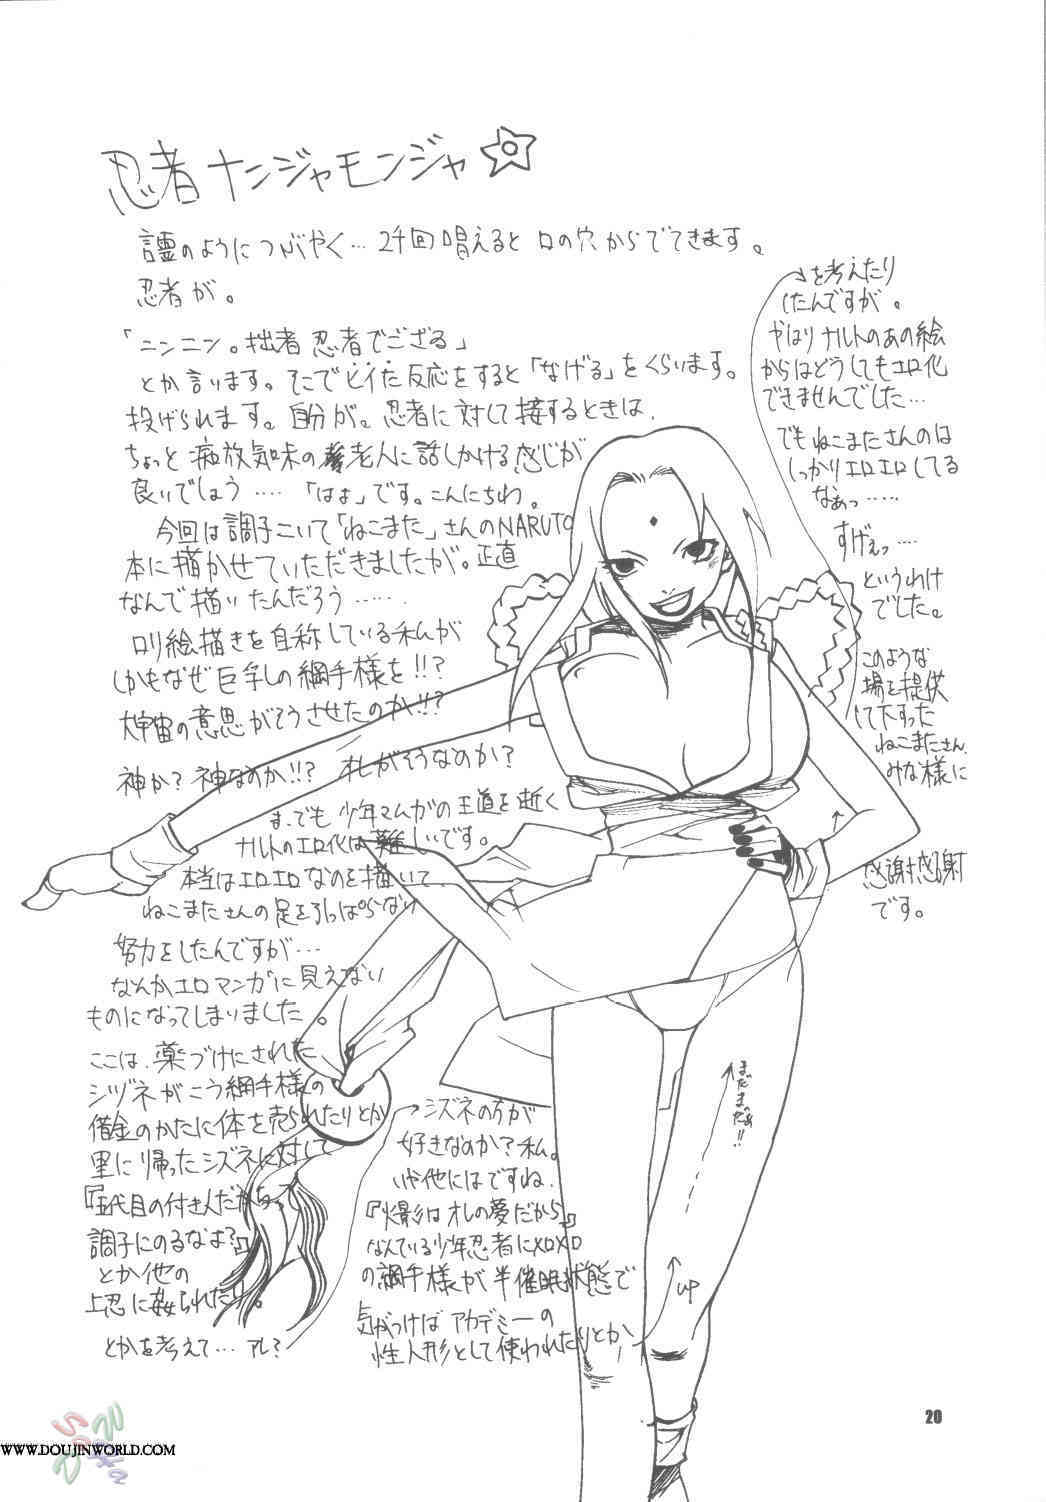 忍者ナンジャモンジャ
言霊のようにつぶやく…2千回唱えると口の穴からでてきます。
忍者が。
「ニンニン。拙者忍者でござる」
とか言います。そこでとイった反応をすると「なげる」をくらいます。
投げられます。自分が。忍者に対して接するときは、
ちょっと痴放気味の老人に話しかける感じが
良いでしょう……「はぁ」です。こんにちわ。
今回は調子こいて「ねこまた」さんのNARUTO
本に描かせていただきましたが。正直
なんで描いたんだろう……
ロリ絵描きを自称している私が
しかもなぜ巨乳しの綱手様を!!?
大宇宙の意思がそうさせたのか!!?
神か?神なのか!!?札がそうなのか?
ま、でも少年マムガの王道を逝く
ナルトのエロ化は難しいです。
本当はエロエロなのを描いて、
ねこまたさんの足を引っぱらない
努力をしたんですが…
なんかエロマンガに見えない
ものになってしまいました。
ここは、薬づけにされた
シヅネがこう綱手様の
借金のかたに体を売られたりとか
里に帰ったシズネに対して
『五代目の付き人だからって
調子にのるなよ?』
とか他の
上忍に姦られたり。
とかを考えて…アレ?
シズネの方が
好きなのか?私。
いや他にはですね、
『火影はオレの夢だから』
なんている少年忍者にXOXO
の綱手様が半催眠状態で
気がつけばアカデミーの
性人形として使われたりとか
を考えたり
したんですが。
やはりナルトのあの絵
からはどうしてもエロ化
できませんでした…
でもねこまたさんのは
しっかりエロエロしてる
なぁっ……
すげぇっ……
というわけ
でした。
このような
場を提供
して下すった
ねこまたさん、
みな様に
感謝感謝
です。
まだまだぁ!!
UP
20
WWW.DOUJINWORLD.COM